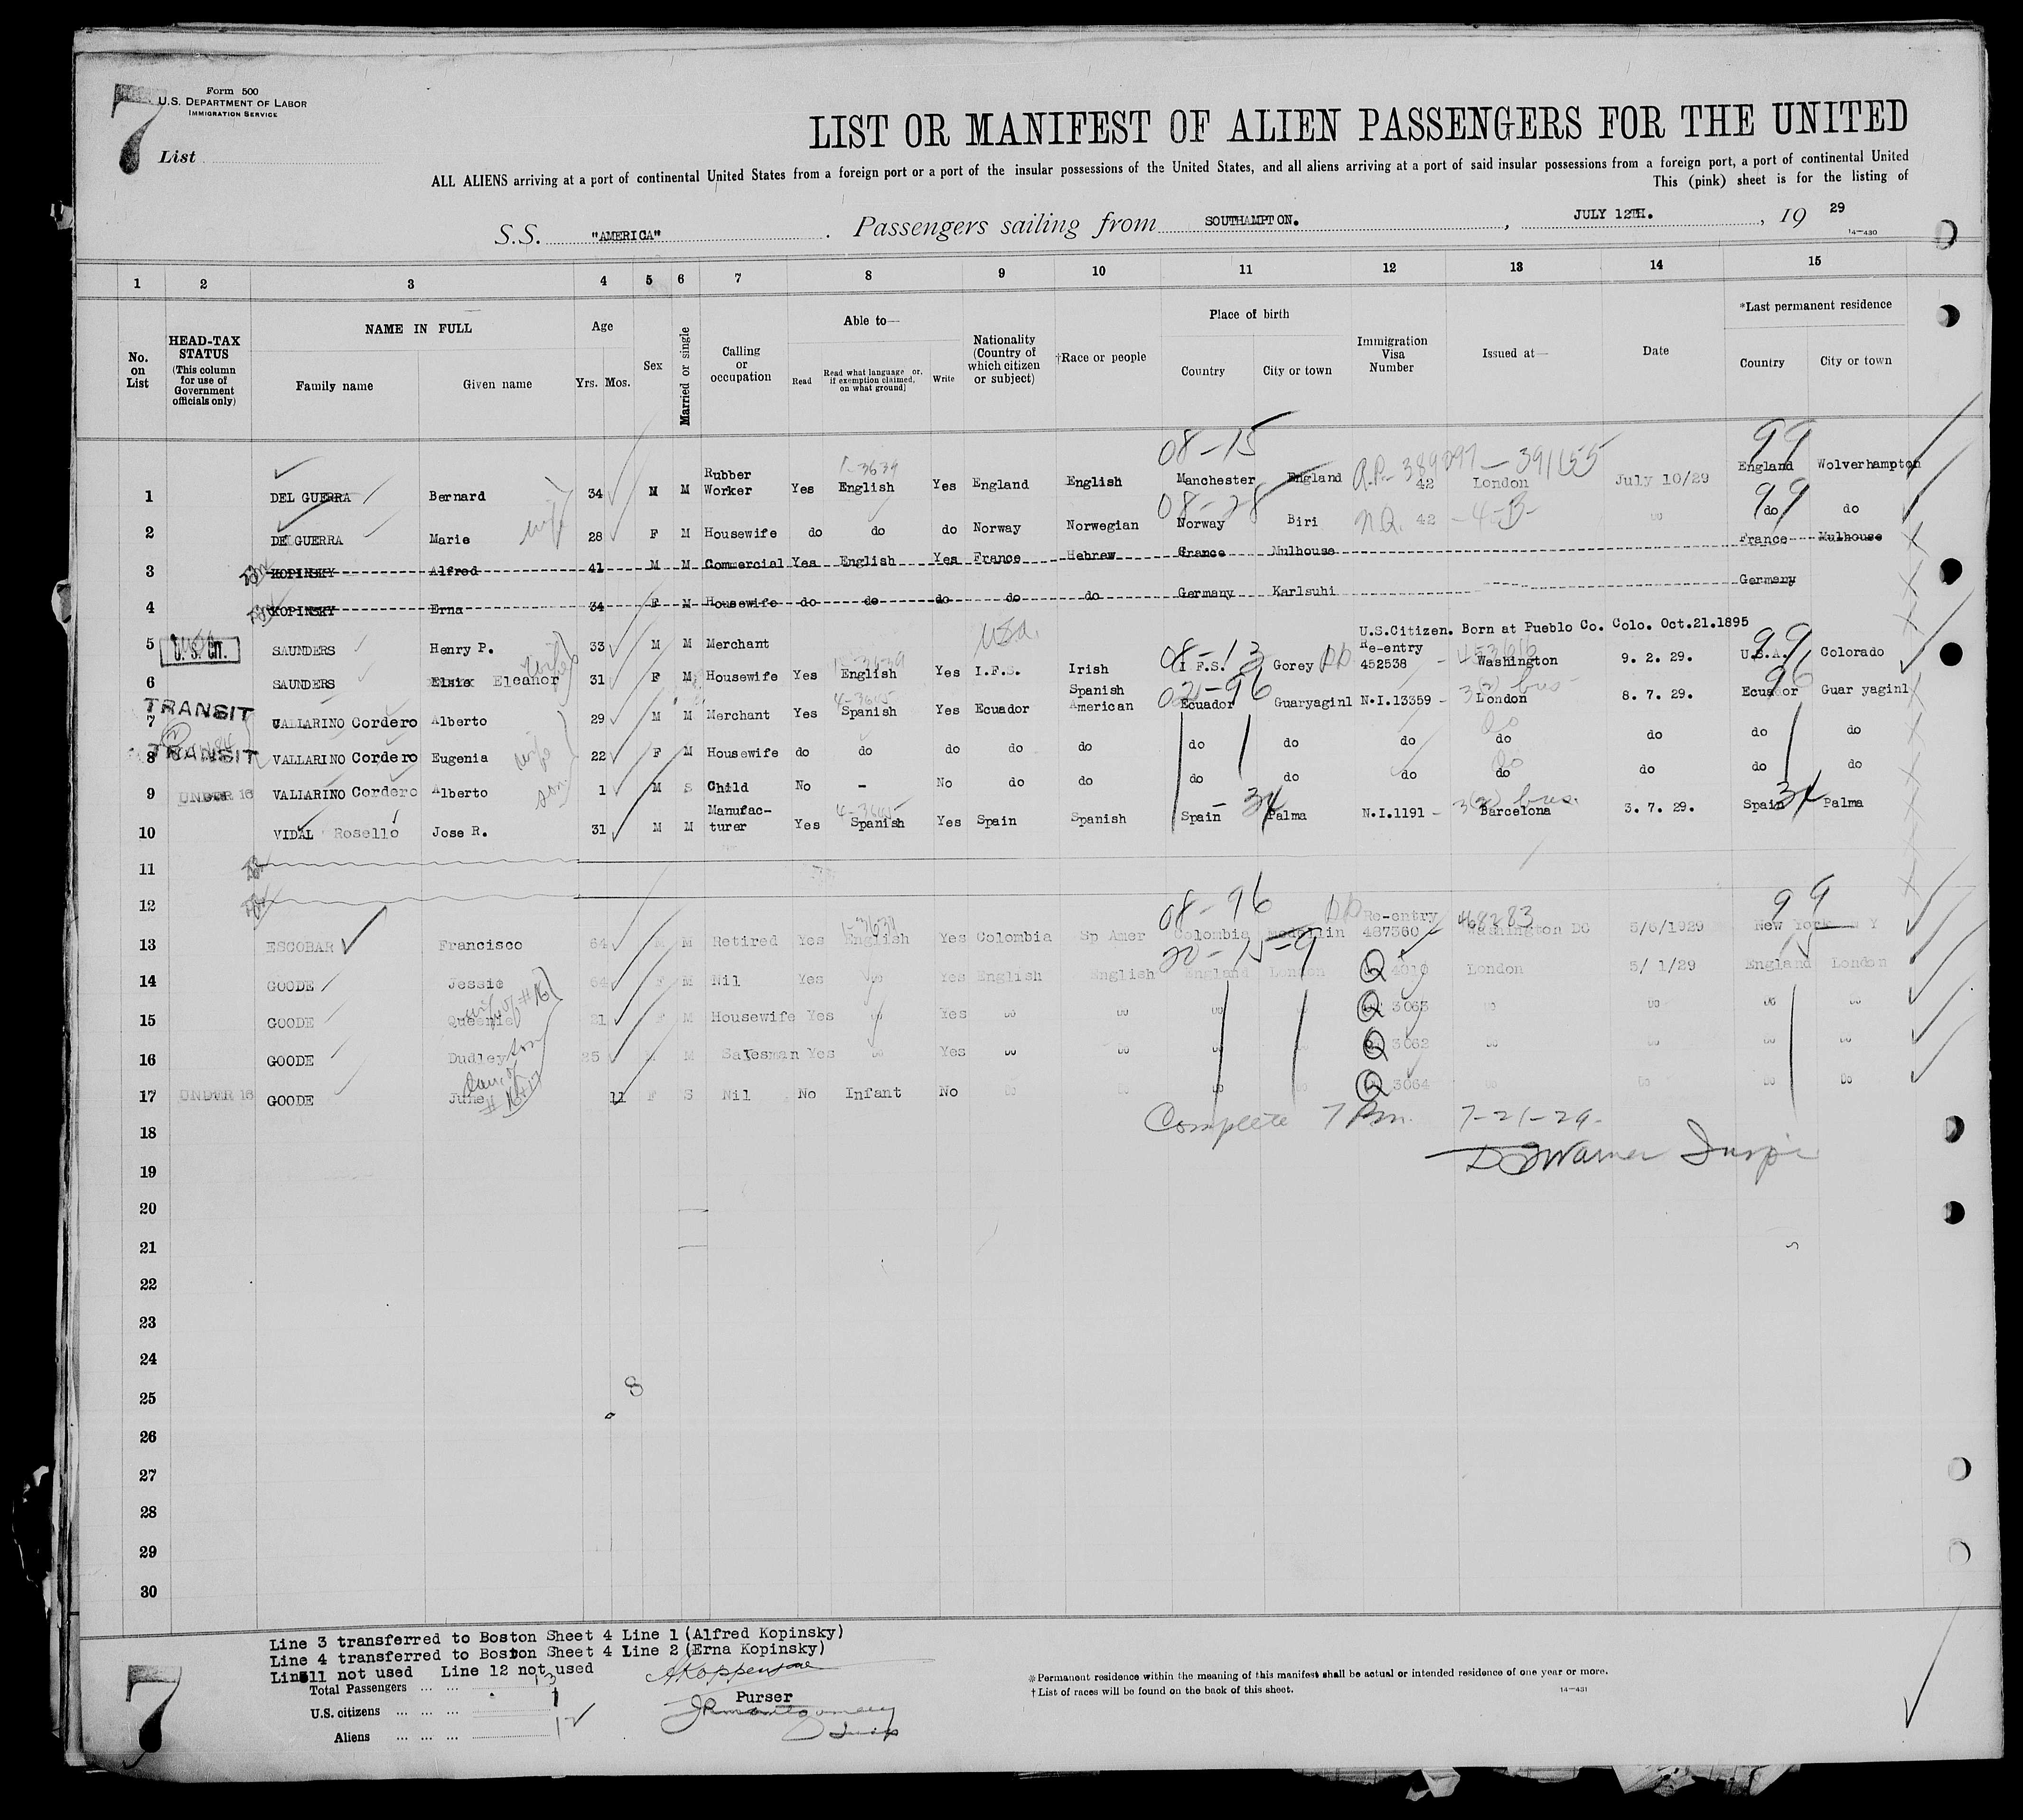 7
Form 500
U.S. DEPARTMENT OF LABOR
IMMIGRATION SERVICE
List
LIST OR MANIFEST OF ALIEN PASSENGERS FOR THE UNITED
ALL ALIENS arriving at a port of continental United States from a foreign port or a port of the insular possessions of the United States, and all aliens arriving at a port of said insular possessions from a foreign port, a port of continental United
This (pink) sheet is for the listing of
S.S. "AMERICA". Passengers sailing from SOUTHAMPTON., JULY 12TH., 19 29
14—430
1 2 3 4 5 6 7 8 9 10 11 12 13 14 15
No. on List
HEAD-TAX STATUS (This column for use of Government officials only)
NAME IN FULL
Family name Given name
Age
Yrs. Mos.
Sex
Married or single
Calling or occupation
Able to—
Read Read what language or, if exemption claimed, on what ground] Write
Nationality (Country of which citizen or subject)
†Race or people
Place of birth
Country City or town
Immigration Visa Number
Issued at—
Date
*Last permanent residence
Country City or town
08-15 99
1-3639 A.P.- 389297 - 391155
1 DEL GUERRA Bernard 34 M M Rubber Worker Yes English Yes England English Manchester England 42 London July 10/29 England Wolverhampton
08-28 99
2 DE GUERRA Marie wife 28 F M Housewife do do do Norway Norwegian Norway Biri N.Q. 42 -4-B- do do do
3 KOPINSKY Alfred 41 M M Commercial Yes English Yes France Hebrew France Mulhouse France Mulhouse
4 KOPINSKY Erna 34 F M Housewife do do do do do Germany Karlsuhi Germany
U.S. CIT.
5 SAUNDERS Henry P. 33 M M Merchant USA. U.S.Citizen. Born at Pueblo Co. Colo. Oct.21.1895
08-13 99
6 SAUNDERS Elsie Eleanor wife 31 F M Housewife Yes English Yes I.F.S. Irish I F.S. Gorey Re-entry 452538 - Washington 9. 2. 29. U.S.A. Colorado
TRANSIT
02-96 96
7 VALLARINO Cordero Alberto 29 M M Merchant Yes 4-3645 Spanish Yes Ecuador Spanish American Ecuador Guaryaginl N.I.13359 - 3(2) bus London 8. 7. 29. Ecuador Guar yaginl
TRANSIT
8 VALLARINO Cordero Eugenia wife 22 F M Housewife do do do do do do do do do do do do
9 UNDER 16 VALLARINO Cordero Alberto son 1 M S Child No - No do do do do do do do do do
10 VIDAL Rosello Jose R. 31 M M Manufac-turer Yes 4-3645 Spanish Yes Spain Spanish Spain - 34 Palma N.I.1191 - 3(2) bus. Barcelona 3. 7. 29. Spain 34 Palma
11
12
08-96 99
13 ESCOBAR Francisco 64 M M Retired Yes 1-3639 English Yes Colombia Sp Amer Colombia Medellin Re-entry 487360 468283 Washington DC 5/6/1929 New York N Y
20-15-9 15
14 GOODE Jessie 64 F M Nil Yes do Yes English English England London Q 4019 London 5/ 1/29 England London
15 GOODE Queenie wife of #16 21 F M Housewife Yes do Yes do do do do Q 3063 do do do do
16 GOODE Dudley son 25 M M Salesman Yes do Yes do do do do Q 3062 do do do do
17 UNDER 16 GOODE June 11 F S Nil No Infant No do do do do Q 3064 do do do do
Complete 7 Pm. 7-21-29.
18
19
20
21
22
23
24
25
26
27
28
29
30
Line 3 transferred to Boston Sheet 4 Line 1 (Alfred Kopinsky)
Line 4 transferred to Boston Sheet 4 Line 2 (Erna Kopinsky)
Line11 not used Line 12 not used
Total Passengers ... ... 13
U.S. citizens ... ... ... 1
Aliens ... ... ... 12
Purser
*Permanent residence within the meaning of this manifest shall be actual or intended residence of one year or more.
†List of races will be found on the back of this sheet.
14—431
7